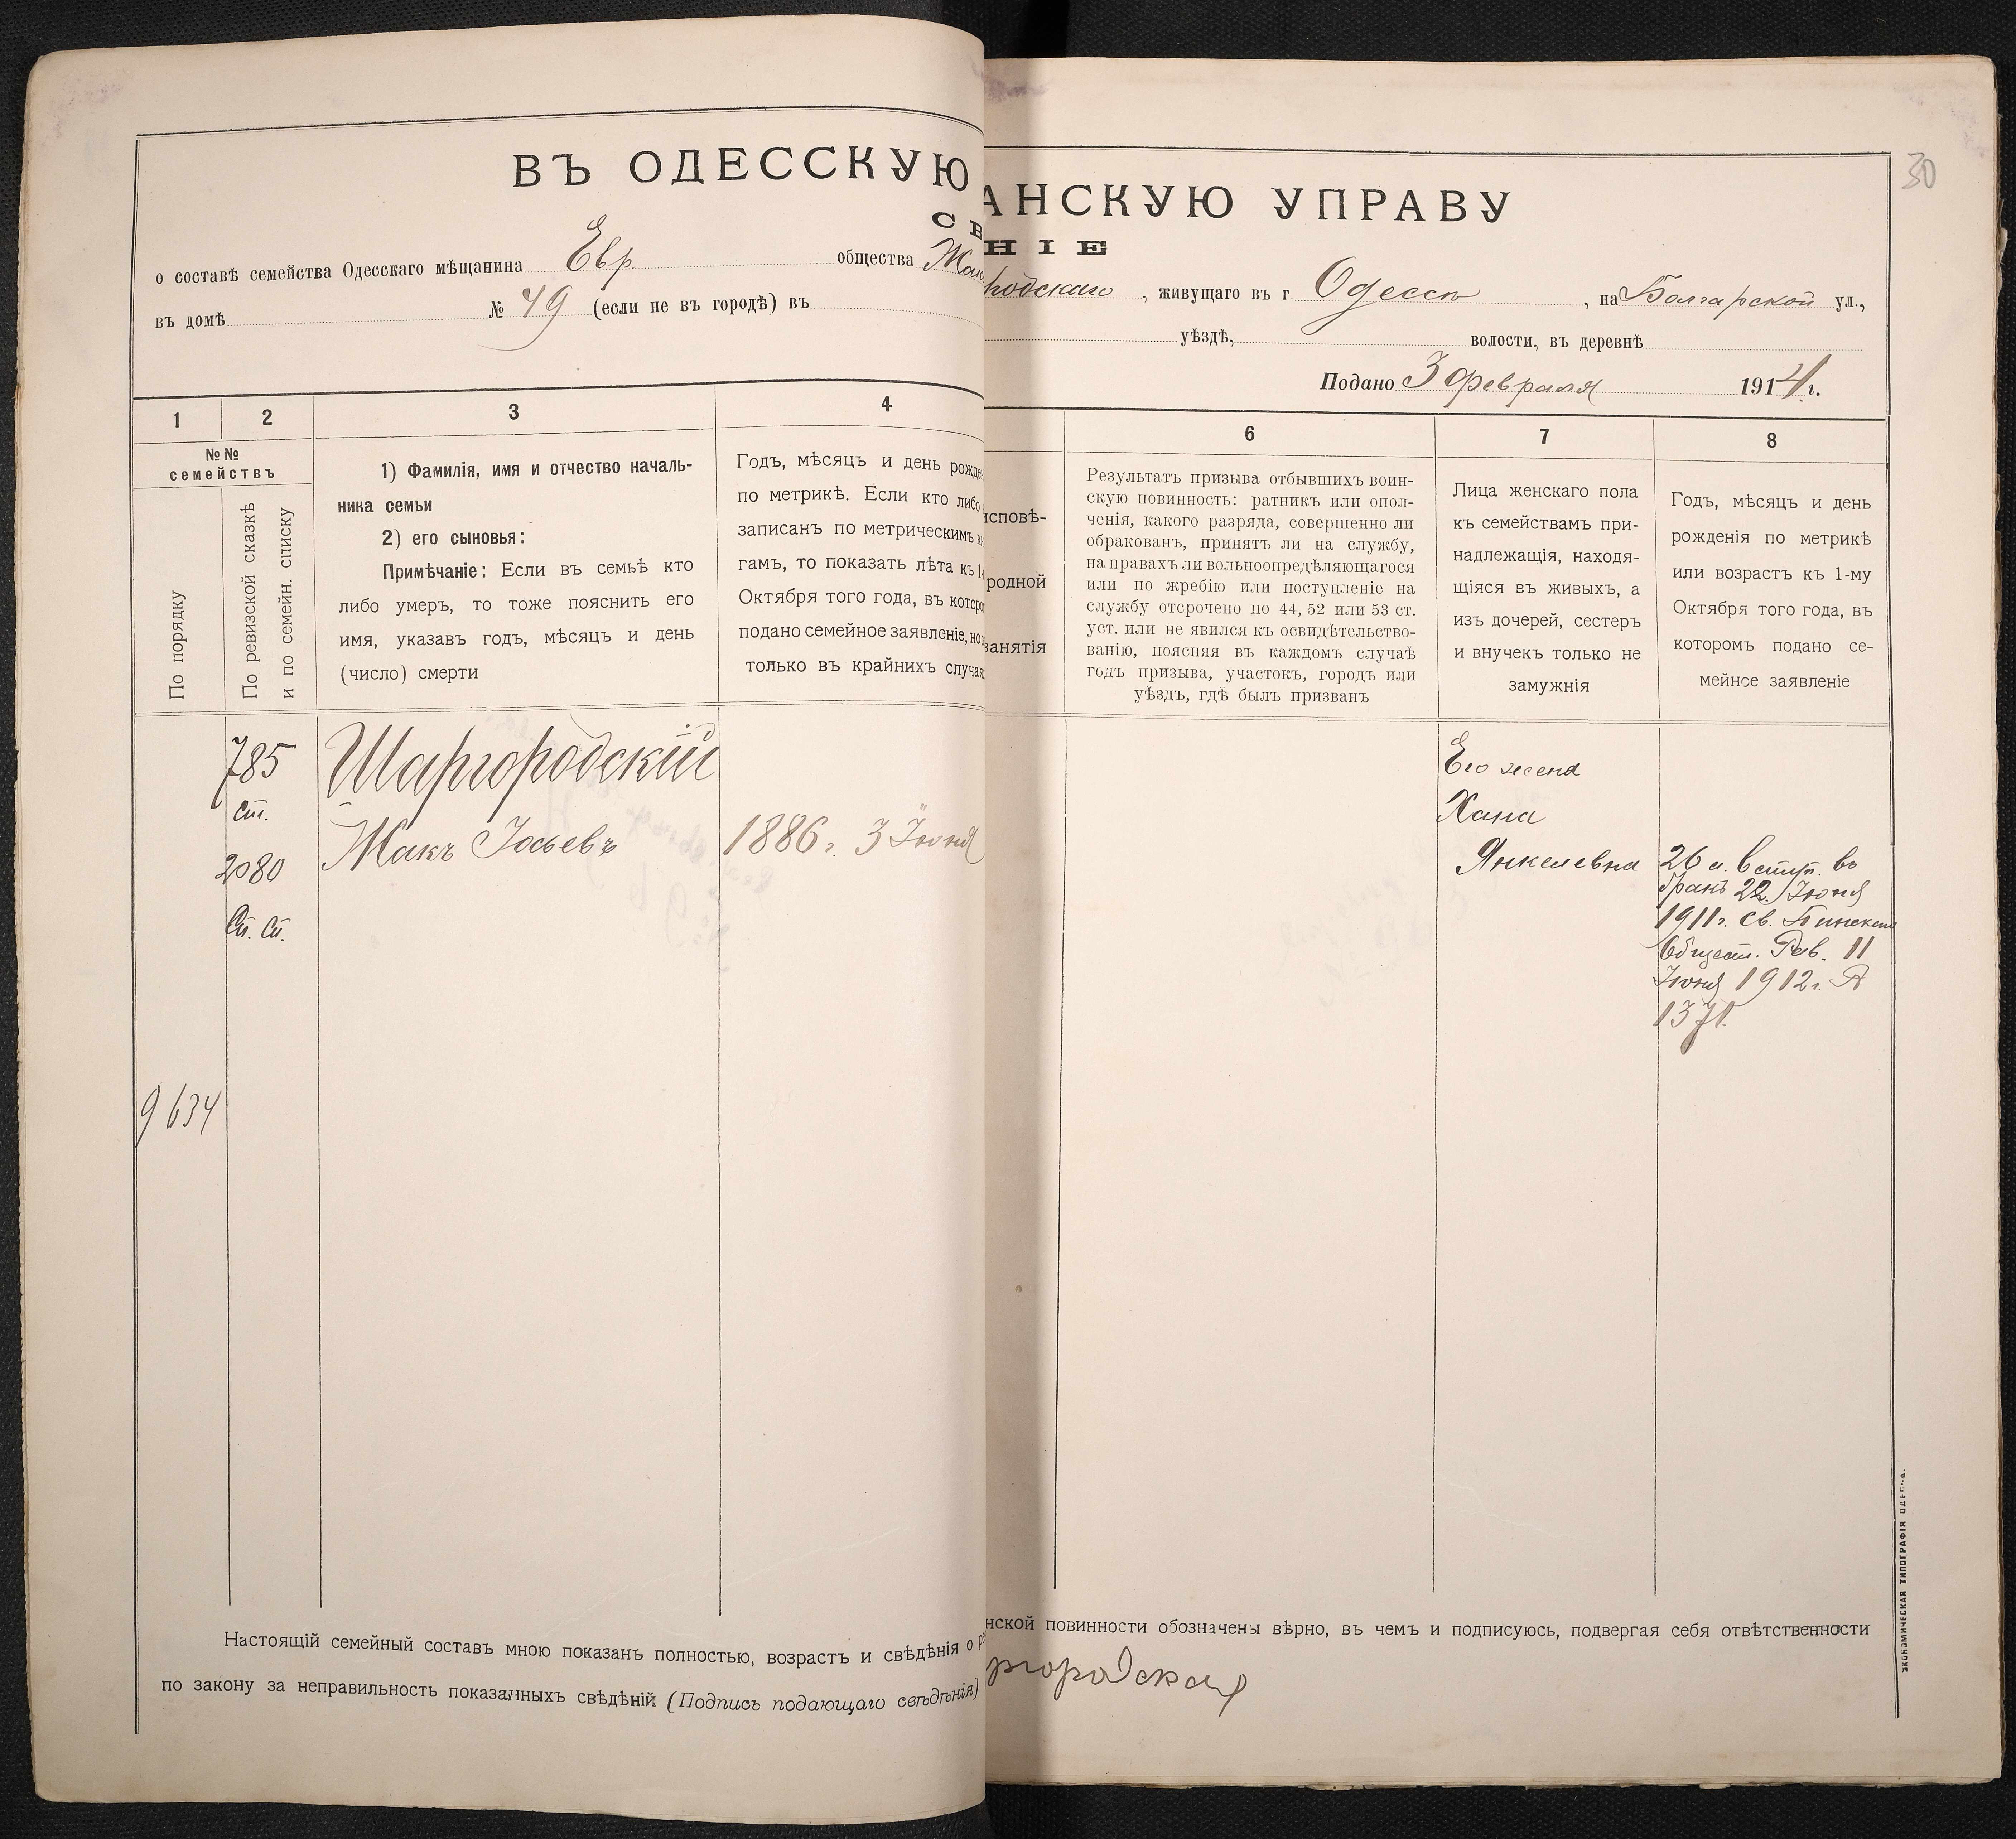 30
ВЪ ОДЕССКУЮ
АНСКУЮ УПРАВУ
СВ
НІЕ
о составѣ семейства Одесскаго мѣщанина Евр. общества Жак
родскаго, живущаго въ г. Одессѣ, на Болгарской ул.,
въ домѣ № 49 (если не въ городѣ) въ
уѣздѣ, волости, въ деревнѣ
Подано 3 Февраля 1914 г.
1 2 3 4
6 7 8
№№
семействъ
По порядку
По ревизской сказкѣ
и по семейн. списку
1) Фамилія, имя и отчество началь-
ника семьи
2) его сыновья:
Примѣчаніе: Если въ семьѣ кто
либо умеръ, то тоже пояснить его
имя, указавъ годъ, мѣсяцъ и день
(число) смерти
Годъ, мѣсяцъ и день рожде
по метрикѣ. Если кто либо
записанъ по метрическимъ
гамъ, то показать лѣта къ 1-
Октября того года, въ которо
подано семейное заявленіе, но
только въ крайнихъ случая
исповѣ-
родной
занятія
Результатъ призыва отбывшихъ воин-
скую повинность: ратникъ или опол-
ченія, какого разряда, совершенно ли
обракованъ, принятъ ли на службу,
на правахъ ли вольноопредѣляющагося
или по жребію или поступленіе на
службу отсрочено по 44, 52 или 53 ст.
уст. или не явился къ освидѣтельство-
ванію, поясняя въ каждомъ случаѣ
годъ призыва, участокъ, городъ или
уѣздъ, гдѣ былъ призванъ
Лица женскаго пола
къ семействамъ при-
надлежащія, находя-
щіяся въ живыхъ, а
изъ дочерей, сестеръ
и внучекъ только не
замужнія
Годъ, мѣсяцъ и день
рожденія по метрикѣ
или возрастъ къ 1-му
Октября того года, въ
котором подано се-
мейное заявленіе
785
ст.
2080
Сп. Сп.
9634
Шаргородскій
Жакъ Іосьевъ
1886 г. 3 Іюня
Его жена
Хана
Янкелевна
26 л. вступ. въ
бракъ 22 Іюня
1911 г. св. Пинскаго
Обществ. Рав. 11
Іюня 1912 г. №
1371.
Настоящій семейный составъ мною показанъ полностью, возрастъ и свѣдѣнія о
нской повинности обозначены вѣрно, въ чемъ и подписуюсь, подвергая себя отвѣтственности
по закону за неправильность показанныхъ свѣдѣній (Подпись подающаго свѣдѣнія)
ргородская
ЭКОНОМИЧЕСКАЯ ТИПОГРАФІЯ ОДЕССА.